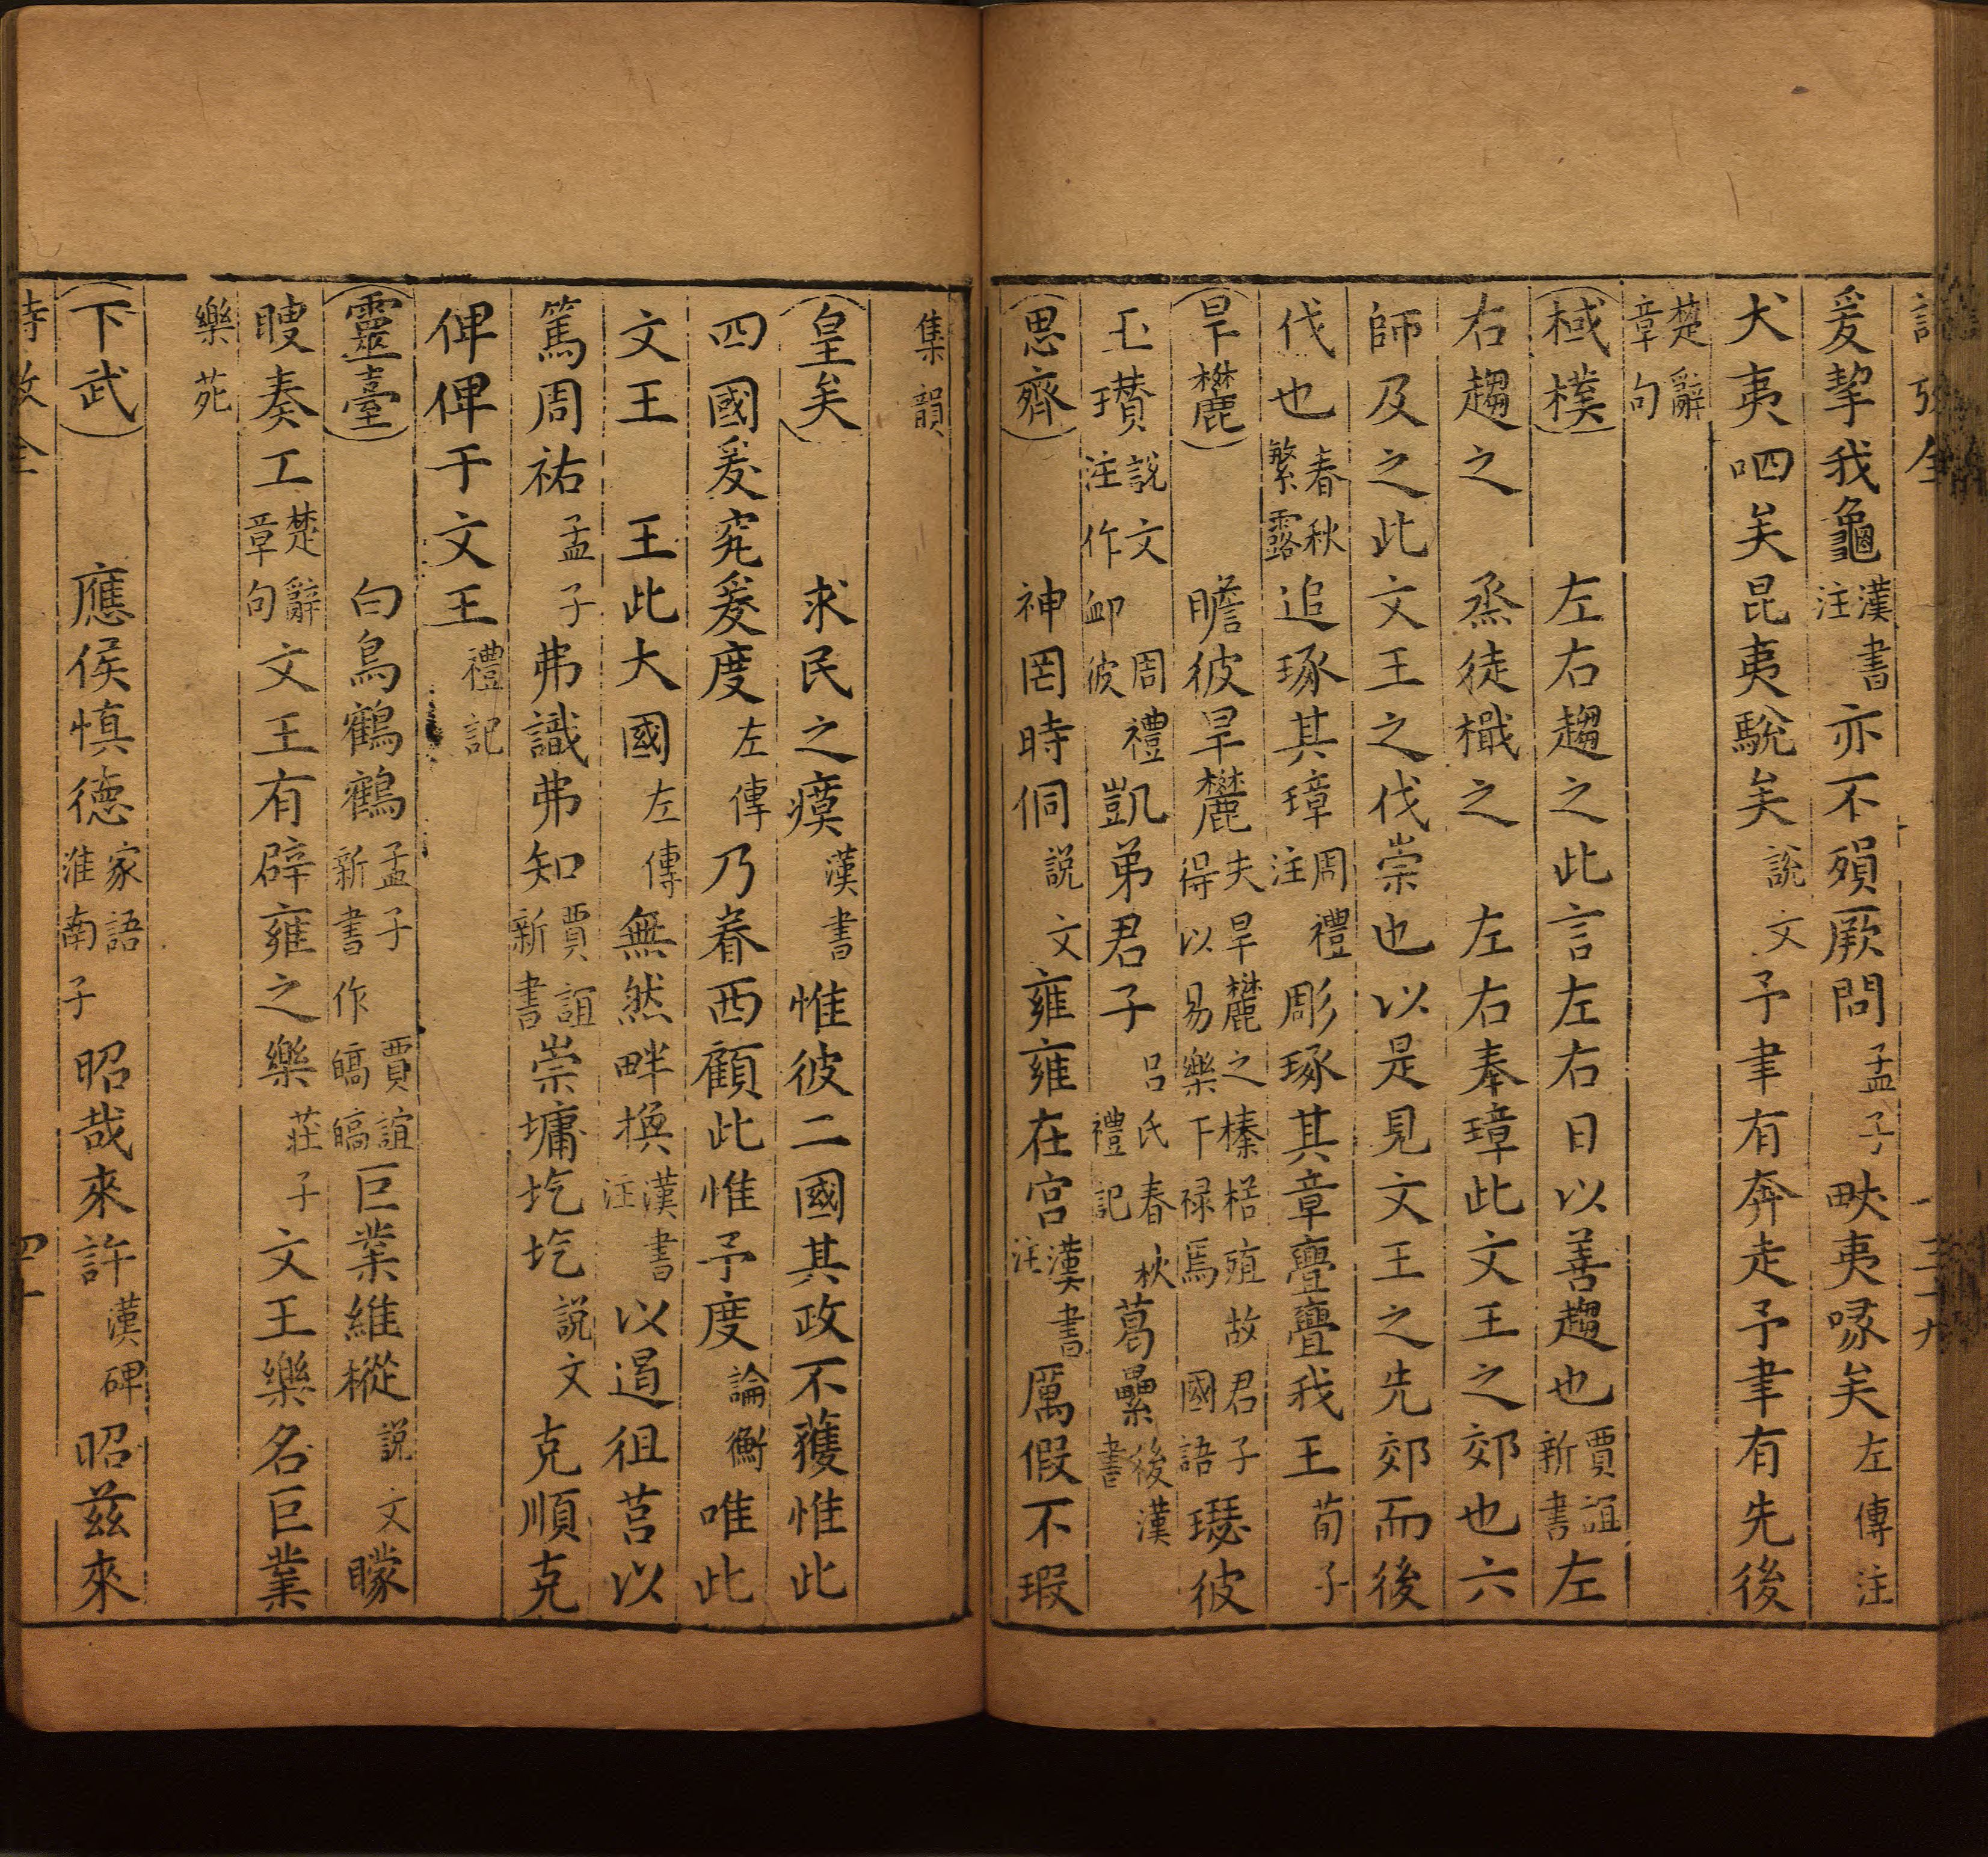 爰挈我龜漢書注亦不殞厥問孟子畎夷喙矣左傳注
犬夷呬矣昆夷駾矣説文予聿有奔走予聿有先後
楚辭章句
棫樸 左右趨之此言左右日以善趨也賈誼新書左
右趨之 烝徒檝之 左右奉璋此文王之郊也六
師及之此文王之伐崇也以是見文王之先郊而後
伐也春秋繁露追琢其璋周禮注彫琢其章亹亹我王荀子
旱麓 瞻彼旱麓夫旱麓之榛楛殖故君子得以易樂下禄焉國語瑟彼
玉瓚説文注作卹周禮彼凱弟君子吕氏春秋禮記葛纍後漢書
思齊 神罔時侗説文雍雍在宫漢書注厲假不瑕
集韻
皇矣 求民之瘼漢書惟彼二國其政不獲惟此
四國爰究爰度左傳乃眷西顧此惟予度論衡唯此
文王 王此大國左傳無然畔換漢書注以遏徂莒以
篤周祐孟子弗識弗知賈誼新書崇墉圪圪説文克順克
俾俾于文王禮記
靈臺 白鳥鶴鶴孟子賈誼新書作皜皜巨業維樅説文矇
瞍奏工楚辭章句文王有辟雍之樂莊子文王樂名巨業
樂苑
下武 應侯慎德家語淮南子昭哉來許漢碑昭兹來